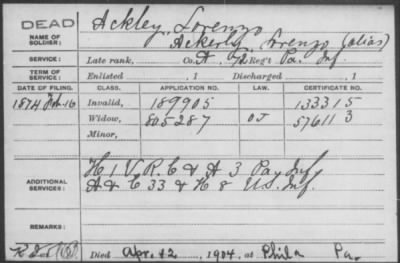 DEAD
NAME OF SOLDIER: Ackley, Lorenzo
Ackerly, Lorenzo (alias)
SERVICE: Late rank, Co. A, 72 Reg't Pa. Inf.
TERM OF SERVICE: Enlisted , 1 Discharged , 1
DATE OF FILING. CLASS. APPLICATION NO. LAW. CERTIFICATE NO.
1874 Feb. 16 Invalid, 189905 133315
Widow, 805287 OJ 576113
Minor,
ADDITIONAL SERVICES: H 1 V.R.C & A 3 Pa Inf
A & C 33 & K 8 U.S. Inf.
REMARKS:
Died Apr. 12, 1904, at Phila Pa.